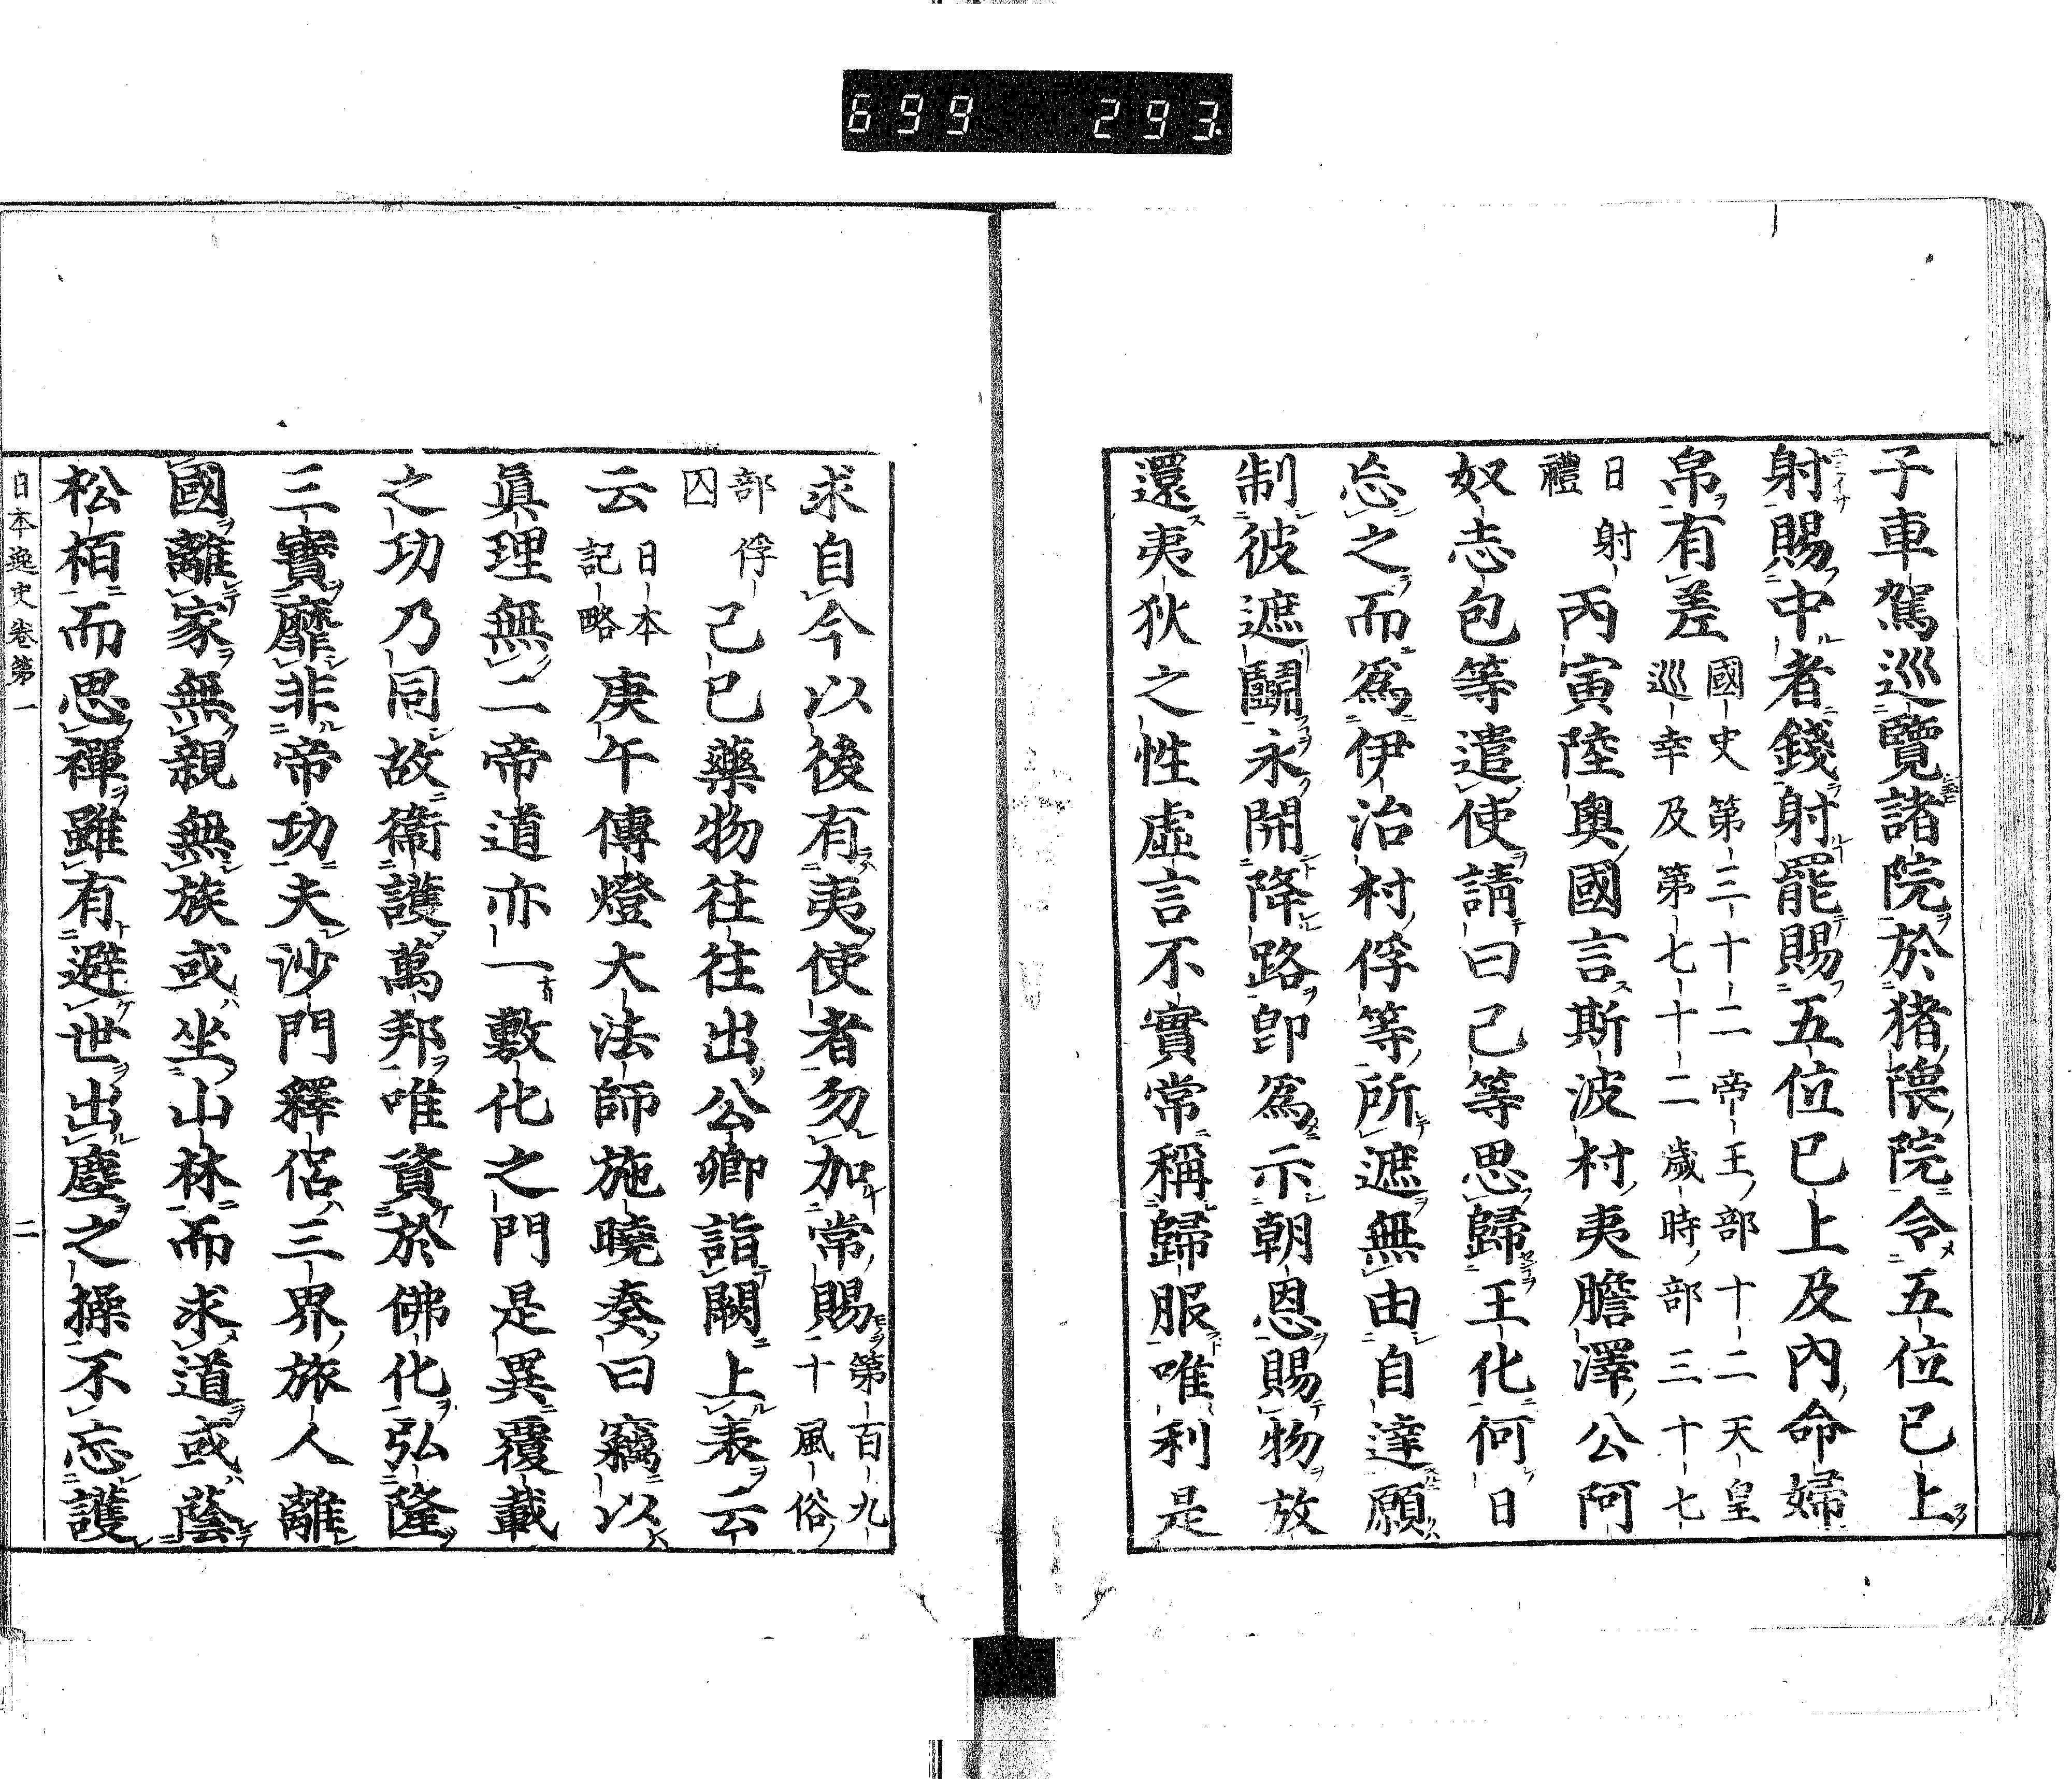 699 293
子車駕巡覽諸院於猪隈院令五位已上
射賜中者錢射罷賜五位已上及内命婦
帛有差國史第三十二帝王部十二天皇
巡幸及第七十二歳時部三十七
日射
禮
丙寅陸奥國言斯波村夷膽澤公阿
奴志包等遣使請曰己等思歸王化何日
忘之而爲伊治村俘等所遮無由自達願
制彼遮鬪永開降路即爲示朝恩賜物放
還夷狄之性虚言不實常稱歸服唯利是
求自今以後有夷使者勿加常賜第百九
十風俗
部俘
囚
己巳藥物往往出公卿詣闕上表云
云日本
記略
庚午傳燈大法師施曉奏曰竊以
眞理無二帝道亦一敷化之門是異覆載
之功乃同故衞護萬邦唯資於佛化弘隆
三寶靡非帝功夫沙門釋侶三界旅人離
國離家無親無族或坐山林而求道或蔭
松栢而思禪雖有避世出塵之操不忘護
日本逸史卷第一
二